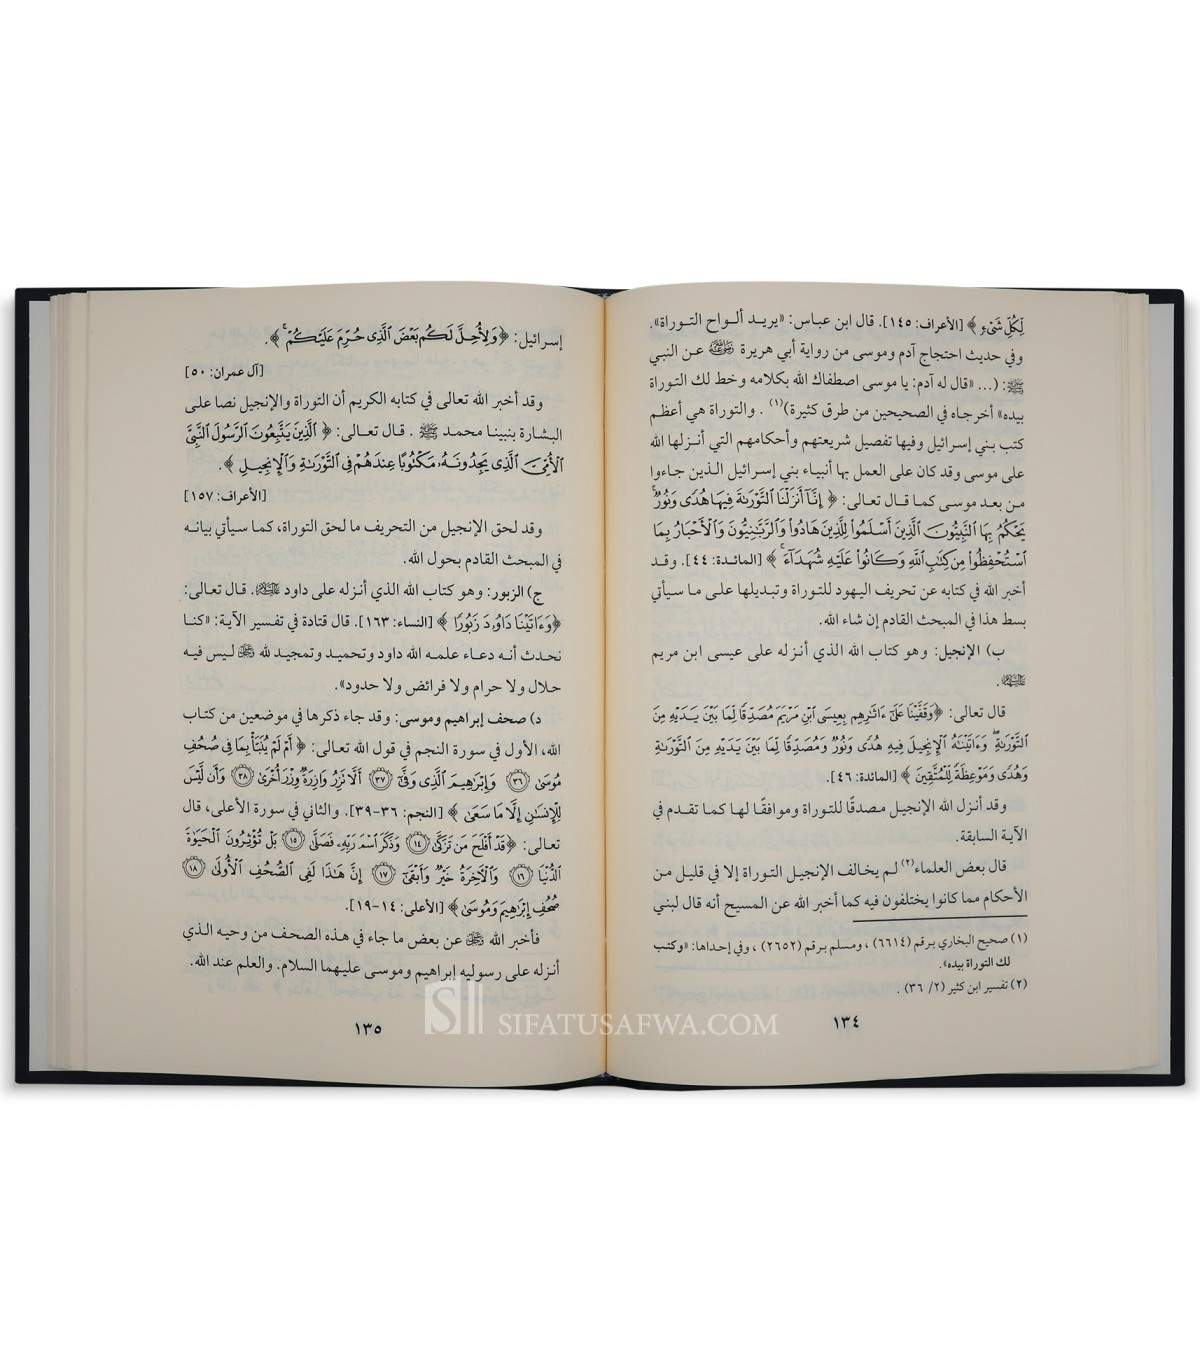 لِكُلِّ شَىْءٍ ﴾ [الأعراف: ١٤٥]. قال ابن عباس: «يريد ألواح التوراة».
وفي حديث احتجاج آدم وموسى من رواية أبي هريرة رضي الله عنه عن النبي
ﷺ: (... «قال له آدم: يا موسى اصطفاك الله بكلامه وخط لك التوراة
بيده» أخرجاه في الصحيحين من طرق كثيرة)(١) . والتوراة هي أعظم
كتب بني إسرائيل وفيها تفصيل شريعتهم وأحكامهم التي أنزلها الله
على موسى وقد كان على العمل بها أنبياء بني إسرائيل الذين جاءوا
من بعد موسى كما قال تعالى: ﴿ إِنَّآ أَنزَلْنَا ٱلتَّوْرَىٰةَ فِيهَا هُدًى وَنُورٌ ۚ
يَحْكُمُ بِهَا ٱلنَّبِيُّونَ ٱلَّذِينَ أَسْلَمُوا۟ لِلَّذِينَ هَادُوا۟ وَٱلرَّبَّٰنِيُّونَ وَٱلْأَحْبَارُ بِمَا
ٱسْتُحْفِظُوا۟ مِن كِتَٰبِ ٱللَّهِ وَكَانُوا۟ عَلَيْهِ شُهَدَآءَ ۚ ﴾ [المائدة: ٤٤]. وقد
أخبر الله في كتابه عن تحريف اليهود للتوراة وتبديلها على ما سيأتي
بسط هذا في المبحث القادم إن شاء الله.
ب) الإنجيل: وهو كتاب الله الذي أنزله على عيسى ابن مريم
عليه السلام .
قال تعالى: ﴿وَقَفَّيْنَا عَلَىٰٓ ءَاثَٰرِهِم بِعِيسَى ٱبْنِ مَرْيَمَ مُصَدِّقًا لِّمَا بَيْنَ يَدَيْهِ مِنَ
ٱلتَّوْرَىٰةِ ۖ وَءَاتَيْنَٰهُ ٱلْإِنجِيلَ فِيهِ هُدًى وَنُورٌ وَمُصَدِّقًا لِّمَا بَيْنَ يَدَيْهِ مِنَ ٱلتَّوْرَىٰةِ
وَهُدًى وَمَوْعِظَةً لِّلْمُتَّقِينَ ﴾ [المائدة: ٤٦].
وقد أنزل الله الإنجيل مصدقًا للتوراة وموافقًا لها كما تقدم في
الآية السابقة.
قال بعض العلماء(٢) لم يخالف الإنجيل التوراة إلا في قليل من
الأحكام مما كانوا يختلفون فيه كما أخبر الله عن المسيح أنه قال لبني
(١) صحيح البخاري برقم (٦٦١٤) ، ومسلم برقم (٢٦٥٢) ، وفي إحداها: «وكتب
لك التوراة بيده».
(٢) تفسير ابن كثير (٢/ ٣٦) .
١٣٤
إسرائيل: ﴿وَلِأُحِلَّ لَكُم بَعْضَ ٱلَّذِى حُرِّمَ عَلَيْكُمْ ۚ ﴾.
[آل عمران: ٥٠]
وقد أخبر الله تعالى في كتابه الكريم أن التوراة والإنجيل نصا على
البشارة بنبينا محمد ﷺ . قال تعالى: ﴿ ٱلَّذِينَ يَتَّبِعُونَ ٱلرَّسُولَ ٱلنَّبِىَّ
ٱلْأُمِّىَّ ٱلَّذِى يَجِدُونَهُۥ مَكْتُوبًا عِندَهُمْ فِى ٱلتَّوْرَىٰةِ وَٱلْإِنجِيلِ ﴾.
[الأعراف: ١٥٧]
وقد لحق الإنجيل من التحريف ما لحق التوراة، كما سيأتي بيانه
في المبحث القادم بحول الله.
ج) الزبور: وهو كتاب الله الذي أنزله على داود عليه السلام. قال تعالى:
﴿وَءَاتَيْنَا دَاوُۥدَ زَبُورًا ﴾ [النساء: ١٦٣]. قال قتادة في تفسير الآية: «كنا
نحدث أنه دعاء علمه الله داود وتحميد وتمجيد لله ﷻ ليس فيه
حلال ولا حرام ولا فرائض ولا حدود».
د) صحف إبراهيم وموسى: وقد جاء ذكرها في موضعين من كتاب
الله، الأول في سورة النجم في قول الله تعالى: ﴿ أَمْ لَمْ يُنَبَّأْ بِمَا فِى صُحُفِ
مُوسَىٰ ۝٣٦ وَإِبْرَٰهِيمَ ٱلَّذِى وَفَّىٰٓ ۝٣٧ أَلَّا تَزِرُ وَازِرَةٌ وِزْرَ أُخْرَىٰ ۝٣٨ وَأَن لَّيْسَ
لِلْإِنسَٰنِ إِلَّا مَا سَعَىٰ ﴾ [النجم: ٣٦-٣٩]. والثاني في سورة الأعلى، قال
تعالى: ﴿قَدْ أَفْلَحَ مَن تَزَكَّىٰ ۝١٤ وَذَكَرَ ٱسْمَ رَبِّهِۦ فَصَلَّىٰ ۝١٥ بَلْ تُؤْثِرُونَ ٱلْحَيَوٰةَ
ٱلدُّنْيَا ۝١٦ وَٱلْءَاخِرَةُ خَيْرٌ وَأَبْقَىٰٓ ۝١٧ إِنَّ هَٰذَا لَفِى ٱلصُّحُفِ ٱلْأُولَىٰ ۝١٨
صُحُفِ إِبْرَٰهِيمَ وَمُوسَىٰ ﴾ [الأعلى: ١٤-١٩].
فأخبر الله ﷻ عن بعض ما جاء في هذه الصحف من وحيه الذي
أنزله على رسوليه إبراهيم وموسى عليهما السلام. والعلم عند الله.
١٣٥
SIFATUSAFWA.COM